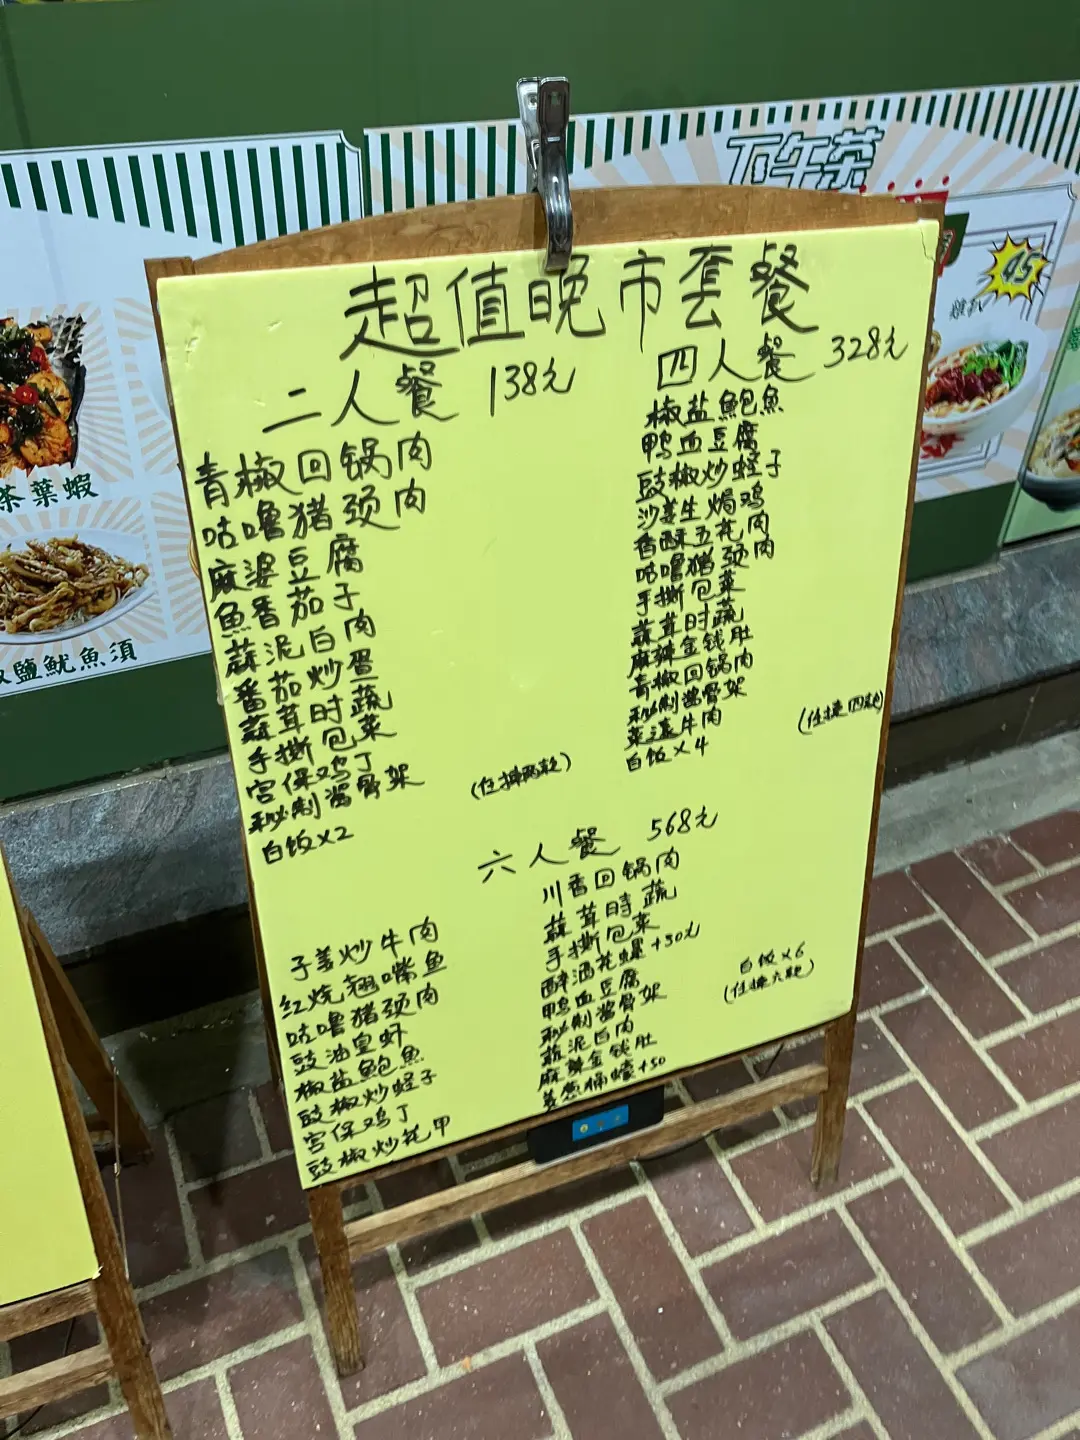 下午茶
45
雞扒
茶葉蝦
鹽魷魚須
超值晚市套餐
二人餐 138元
青椒回锅肉
咕噜猪颈肉
麻婆豆腐
鱼香茄子
蒜泥白肉
番茄炒蛋
蒜茸时蔬
手撕包菜
宫保鸡丁
秘制酱骨架
白饭x2
(任揀两款)
四人餐 328元
椒盐鲍魚
鸭血豆腐
豉椒炒蛏子
沙姜生焗鸡
香酥五花肉
咕噜猪颈肉
手撕包菜
蒜茸时蔬
麻辣金钱肚
青椒回锅肉
秘制酱骨架
菜远牛肉
白饭x4
(任揀四款)
六人餐 568元
子姜炒牛肉
红烧翘嘴鱼
咕噜猪颈肉
豉油皇虾
椒盐鲍魚
豉椒炒蛏子
宫保鸡丁
豉椒炒花甲
川香回锅肉
蒜茸時蔬
手撕包菜
醉酒花螺+30元
鸭血豆腐
秘制酱骨架
蒜泥白肉
金钱肚
姜葱桶蠔+50
白饭x6
(任揀六款)